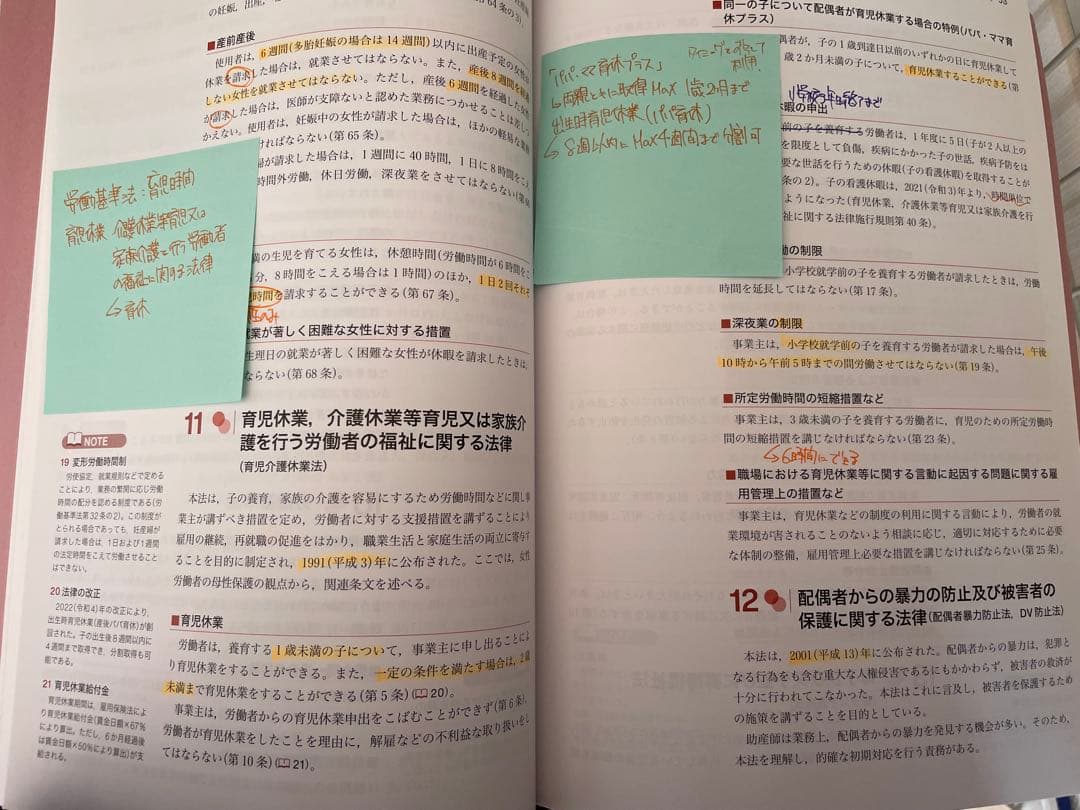 ■産前産後
使用者は，6週間(多胎妊娠の場合は14週間)以内に出産予定の女性が
休業を請求した場合は，就業させてはならない。また，産後8週間を経過
しない女性を就業させてはならない。ただし，産後6週間を経過した女性
が請求した場合は，医師が支障ないと認めた業務につかせることは差しつ
かえない。使用者は，妊娠中の女性が請求した場合は，ほかの軽易な業務
ければならない(第65条)。
婦が請求した場合は，1週間に40時間，1日に8時間をこえ
時間外労働，休日労働，深夜業をさせてはならない(第66
労働基準法：育児時間
育児休業 介護休業等育児又は
家族介護を行う労働者
の福祉に関する法律
↳育休
満の生児を育てる女性は，休憩時間(労働時間が6時間をこ
分，8時間をこえる場合は1時間)のほか，1日2回それぞ
時間を請求することができる(第67条)。
就業が著しく困難な女性に対する措置
生理日の就業が著しく困難な女性が休暇を請求したときは，
ならない(第68条)。
11 育児休業，介護休業等育児又は家族介
護を行う労働者の福祉に関する法律
(育児介護休業法)
本法は，子の養育，家族の介護を容易にするため労働時間などに関し事
業主が講ずべき措置を定め，労働者に対する支援措置を講ずることにより
雇用の継続，再就職の促進をはかり，職業生活と家庭生活の両立に寄与す
ることを目的に制定され，1991(平成3)年に公布された。ここでは，女性
労働者の母性保護の観点から，関連条文を述べる。
■育児休業
労働者は，養育する1歳未満の子について，事業主に申し出ることによ
り育児休業をすることができる。また，一定の条件を満たす場合は，2歳
未満まで育児休業をすることができる(第5条)(20)。
事業主は，労働者からの育児休業申出をこばむことができず(第6条)，
労働者が育児休業をしたことを理由に，解雇などの不利益な取り扱いをし
てはならない(第10条)(21)。
NOTE
19 変形労働時間制
労使協定，就業規則などで定める
ことにより，業務の繁閑に応じ労働
時間の配分を認める制度である(労
働基準法第32条の2)。この制度が
とられる場合であっても，妊産婦が
請求した場合は，1日および1週間
の法定時間をこえて労働させること
はできない。
20 法律の改正
2022(令和4)年の改正により，
出生時育児休業(産後パパ育休)が創
設された。子の出生後8週間以内に
4週間まで取得でき，分割取得も可
能である。
21 育児休業給付金
育児休業期間は，雇用保険法によ
り育児休業給付金(賃金日額×67%
により算出。ただし，6か月経過後
は賃金日額×50%により算出)が支
給される。
■同一の子について配偶者が育児休業する場合の特例(パパ・ママ育
休プラス)
偶者が，子の1歳到達日以前のいずれかの日に育児休業して
歳2か月未満の子について，育児休業することができる(第
「パパ・ママ育休プラス」
↳両親ともに取得 Max 1歳2か月まで
出生時育児休業(パパ育休)
↳8週以内にMax4週間まで分割可
休暇の申出
前の子を養育する労働者は，1年度に5日(子が2人以上の
を限度として負傷，疾病にかかった子の世話，疾病予防をは
要な世話を行うための休暇(子の看護休暇)を取得することが
条の2)。子の看護休暇は，2021(令和3)年より，時間単位で
ようになった(育児休業，介護休業等育児又は家族介護を行
祉に関する法律施行規則第40条)。
働の制限
小学校就学前の子を養育する労働者が請求したときは，
時間を延長してはならない(第17条)。
■深夜業の制限
事業主は，小学校就学前の子を養育する労働者が請求した場合は，午後
10時から午前5時までの間労働させてはならない(第19条)。
■所定労働時間の短縮措置など
事業主は，3歳未満の子を養育する労働者に，育児のための所定労働時
間の短縮措置を講じなければならない(第23条)。
↳6時間にできる
■職場における育児休業等に関する言動に起因する問題に関する雇
用管理上の措置など
事業主は，育児休業などの制度の利用に関する言動により，労働者の就
業環境が害されることのないよう相談に応じ，適切に対応するために必要
な体制の整備，雇用管理上必要な措置を講じなければならない(第25条)。
12 配偶者からの暴力の防止及び被害者の
保護に関する法律(配偶者暴力防止法，DV防止法)
本法は，2001(平成13)年に公布された。配偶者からの暴力は，犯罪と
なる行為をも含む重大な人権侵害であるにもかかわらず，被害者の救済が
十分に行われてこなかった。本法はこれに言及し，被害者を保護するため
の施策を講ずることを目的としている。
助産師は業務上，配偶者からの暴力を発見する機会が多い。そのため，
本法を理解し，的確な初期対応を行う責務がある。